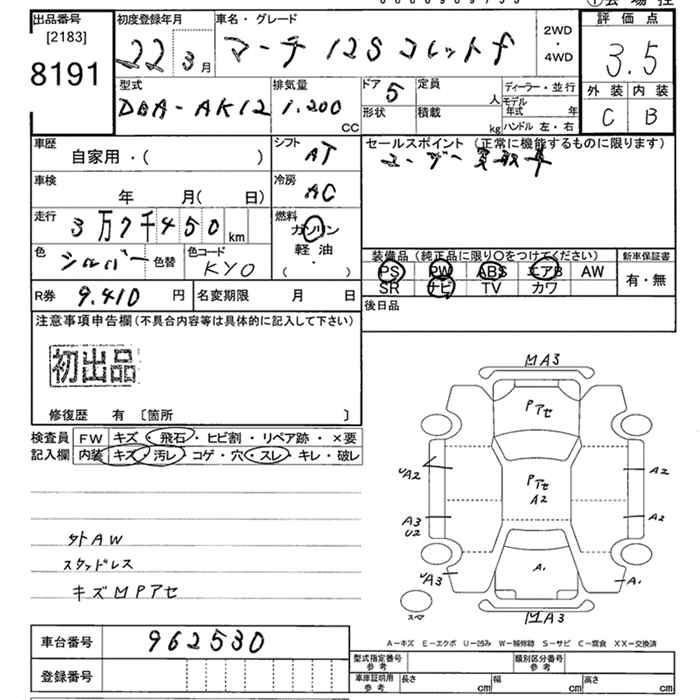 出品番号
[2183]
8191
初度登録年月
22 3月
車名・グレード
マーチ 12S コレットf
2WD
・
4WD
評価点
3.5
外装 内装
C B
型式
DBA-AK12
排気量
1,200
CC
ドア 5
形状
定員
人
積載
kg
ディーラー・並行
モデル年式 年
ハンドル 左・右
車歴
自家用・( )
シフト
AT
セールスポイント (正常に機能するものに限ります)
ユーザー買取車
車検
年 月( 日)
冷房
AC
走行
3万7千450km
燃料
ガソリン
軽油
( ・ )
色
シルバー
色替
色コード
KY0
装備品(純正品に限り〇をつけてください)
PS PW ABS エアB AW
SR ナビ TV カワ
新車保証書
有・無
R券 9,410 円
名変期限 月 日
後日品
注意事項申告欄(不具合内容等は具体的に記入して下さい)
初出品
修復歴 有 〔箇所 〕
検査員
記入欄
FW キズ・飛石・ヒビ割・リペア跡・×要
内装 キズ・汚レ・コゲ・穴・スレ・キレ・破レ
外AW
スタッドレス
キズMPアセ
MA3
Pアセ
UA2
A2
Pアセ
A2
A3
U2
A2
UA3
A1
A1
スペア
MA3
A-キズ E-エクボ U-凹み W-補修跡 S-サビ C-腐食 XX-交換済
車台番号 962530
登録番号
型式指定番号
参考
類別区分番号
参考
車庫証明用
参考
長さ cm 幅 cm 高さ cm